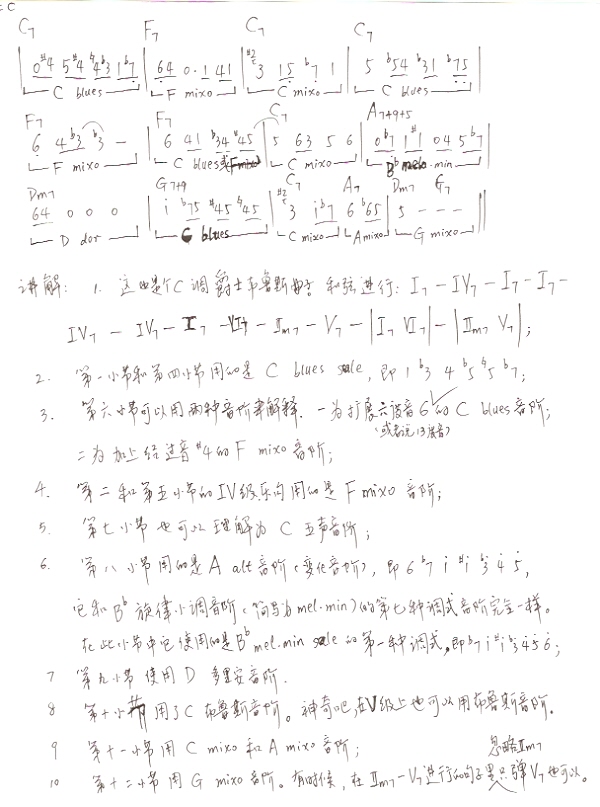 = C
C7 F7 C7 C7
0 #4 5 #4 ♮4 b3 1 b7 | 6 4 0· 1 4 1 | #2 3 1 5 b7 1 | 5 b5 4 b3 1 b7 5
C blues F mixo C mixo C blues
F7 F7 C7 A7+9+5
6 4 b3 b3 - | 6 4 1 b3 4 #4 5 | 5 6 3 5 6 | 0 b7 1 #1 0 4 5 b7
F mixo C blues或 C mixo Bb melo-min
Dm7 G7+9 C7 A7 Dm7 G7
6 4 0 0 0 | i b7 5 #4 5 #4 5 | #2 3 i b7 6 b6 5 | 5 - - - ||
D dor C blues C mixo A mixo G mixo
讲解: 1. 这也是个C调爵士布鲁斯曲子 和弦进行: I7 - IV7 - I7 - I7 -
IV7 - IV7 - I7 - VI7 - IIm7 - V7 - | I7 VI7 | - | IIm7 V7 |;
2. 第一小节和第四小节用的是 C blues scale, 即 1 b3 4 b5 ♮5 b7;
3. 第六小节可以用两种音阶来解释. 一为扩展六级音6的 C blues音阶;
(或者说13度音)
二为加上经过音#4的 F mixo 音阶;
4. 第二和第五小节的IV级乐句用的是 F mixo 音阶;
5. 第七小节也可以理解为 C 五声音阶;
6. 第八小节用的是 A alt 音阶(变化音阶), 即 6 b7 i #i b3 4 5,
它和 Bb 旋律小调音阶(简写为 mel.min)的第七种调式音阶完全一样。
在此小节中它使用的是Bb mel.min scale 的第一种调式,即b7 i #i b3 4 5 6;
7 第九小节使用D 多里安音阶.
8 第十小节用了C 布鲁斯音阶。神奇吧,在V级上也可以用布鲁斯音阶.
9 第十一小节用 C mixo 和 A mixo 音阶;
忽略IIm7
10 第十二小节用 G mixo 音阶。有时候, 在 IIm7-V7进行的句子里只弹V7也可以。